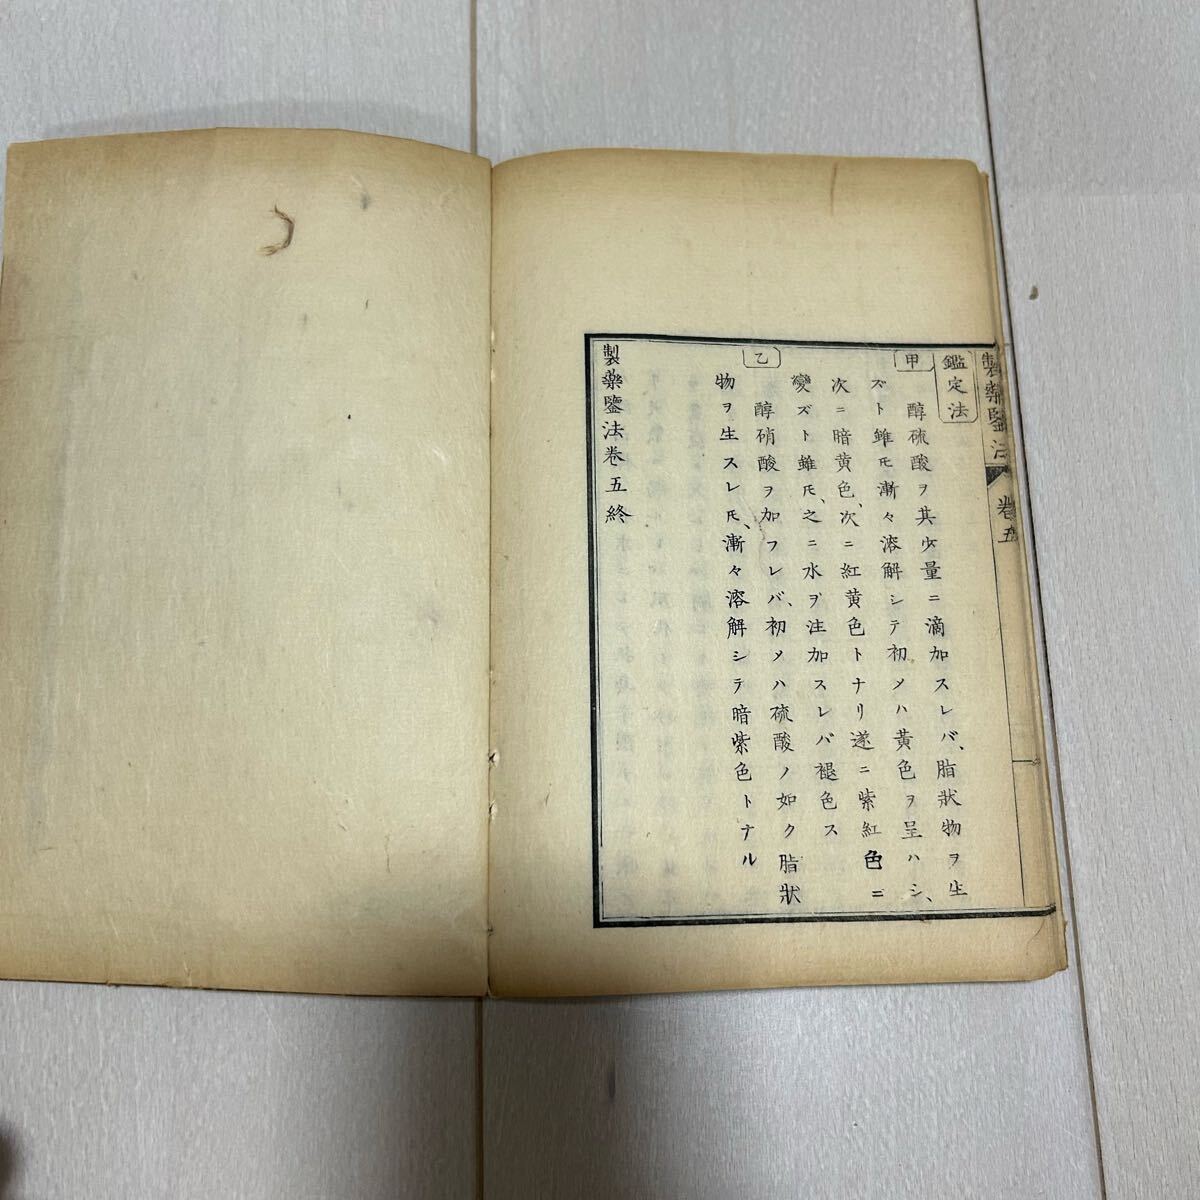 製藥鑒法 卷五
鑑定法
甲
醇硫酸ヲ其少量ニ滴加スレバ、脂狀物ヲ生
ズト雖𪜈漸々溶解シテ初メハ黄色ヲ呈ハシ、
次ニ暗黄色、次ニ紅黄色トナリ遂ニ紫紅色ニ
變ズト雖𪜈、之ニ水ヲ注加スレバ褪色ス
乙
醇硝酸ヲ加フレバ、初メハ硫酸ノ如ク脂狀
物ヲ生スレ𪜈、漸々溶解シテ暗紫色トナル
製藥鑒法卷五終